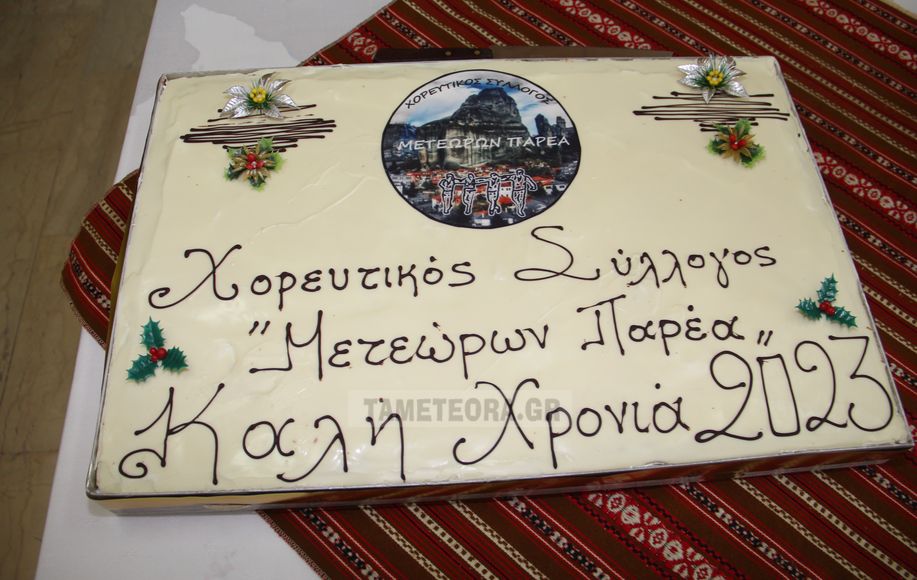 ΧΟΡΕΥΤΙΚΟΣ ΣΥΛΛΟΓΟΣ
ΜΕΤΕΩΡΩΝ ΠΑΡΕΑ
Χορευτικός Σύλλογος
"Μετεώρων Παρέα„
TAMETEORA.GR
Καλή Χρονιά 2023